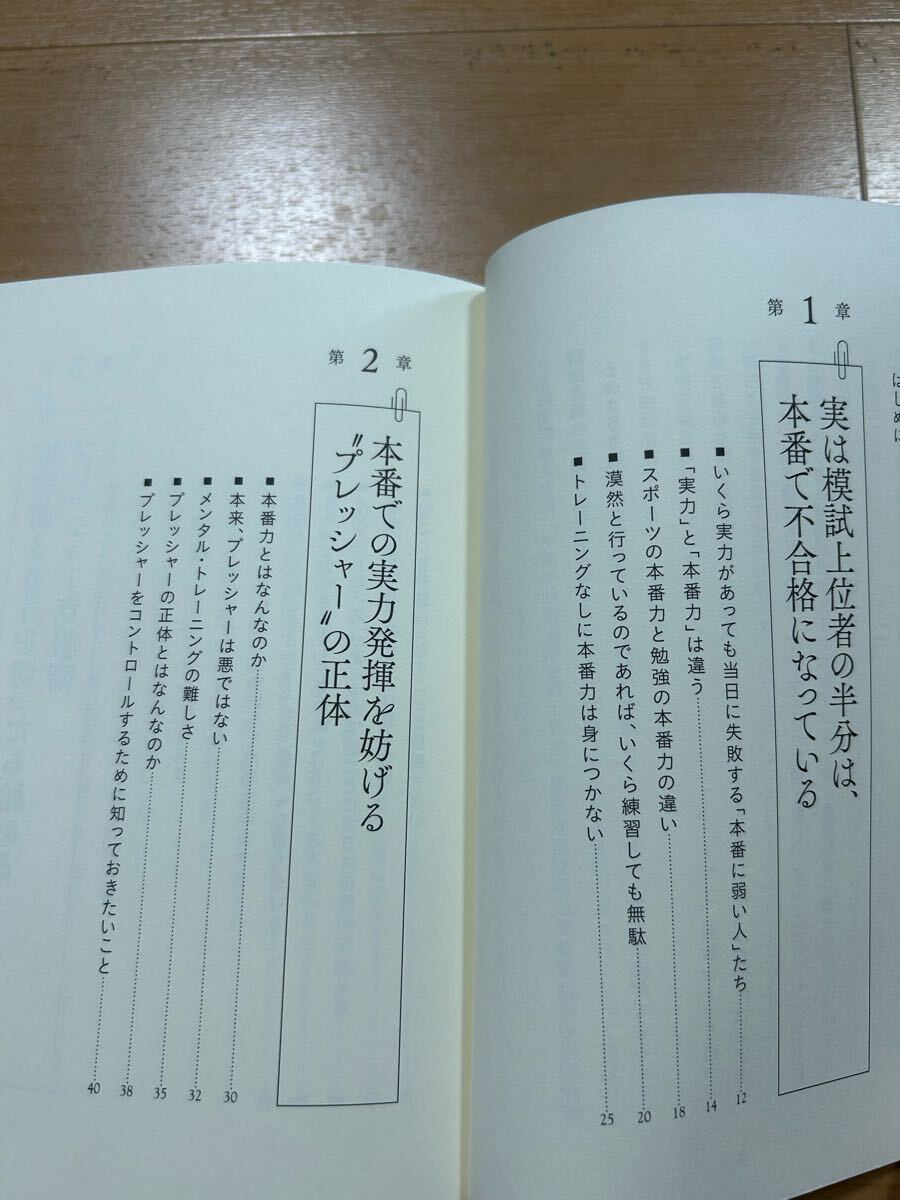 はじめに
第1章
実は模試上位者の半分は、
本番で不合格になっている
■いくら実力があっても当日に失敗する「本番に弱い人」たち 12
■「実力」と「本番力」は違う 14
■スポーツの本番力と勉強の本番力の違い 18
■漠然と行っているのであれば、いくら練習しても無駄 20
■トレーニングなしに本番力は身につかない 25
第2章
本番での実力発揮を妨げる
〝プレッシャー〟の正体
■本番力とはなんなのか 30
■本来、プレッシャーは悪ではない 32
■メンタル・トレーニングの難しさ 35
■プレッシャーの正体とはなんなのか 38
■プレッシャーをコントロールするために知っておきたいこと 40